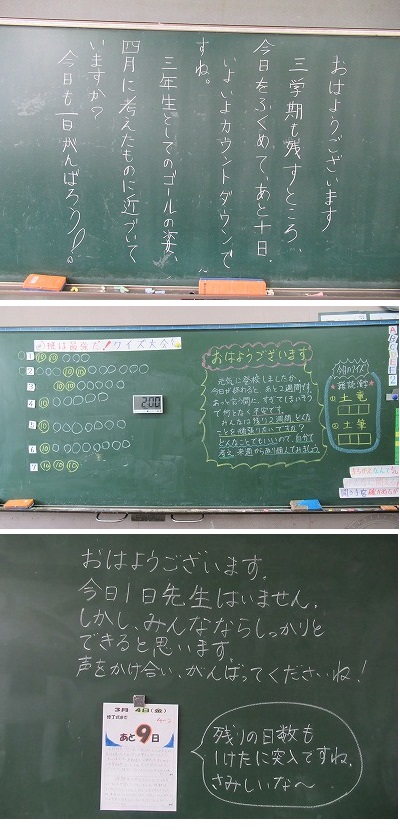 おはようございます
三学期も残すところ、
今日をふくめて、あと十日。
いよいよカウントダウンで
すね。
三年生としてのゴールの姿、
四月に考えたものに近づいて
いますか?
今日も一日がんばろう!
班は最強だ!クイズ大会
1 10 10
2 10 10
3 10 10 10
4 10
5 10
6 10 10
7 10 10 10
200
おはようございます
元気に登校しましたか。
今日が終わると、あと2週間です。
あっと言う間に、すぎてしまいそう
で何となく不安です。
みんなは残り2週間どんな
ことを頑張りたいですか?
どんなことでもいいので、自分で
考え、来週から取り組んでみましょう
今日のクイズ
難読漢字
① 土竜
② 土筆
おはようございます。
今日1日先生はいません。
しかし、みんなならしっかりと
できると思います。
声をかけ合い、がんばってくださいね!
3月4日(金)
修了式まで
あと9日
残りの日数も
1けたに突入ですね。
さみしいな〜